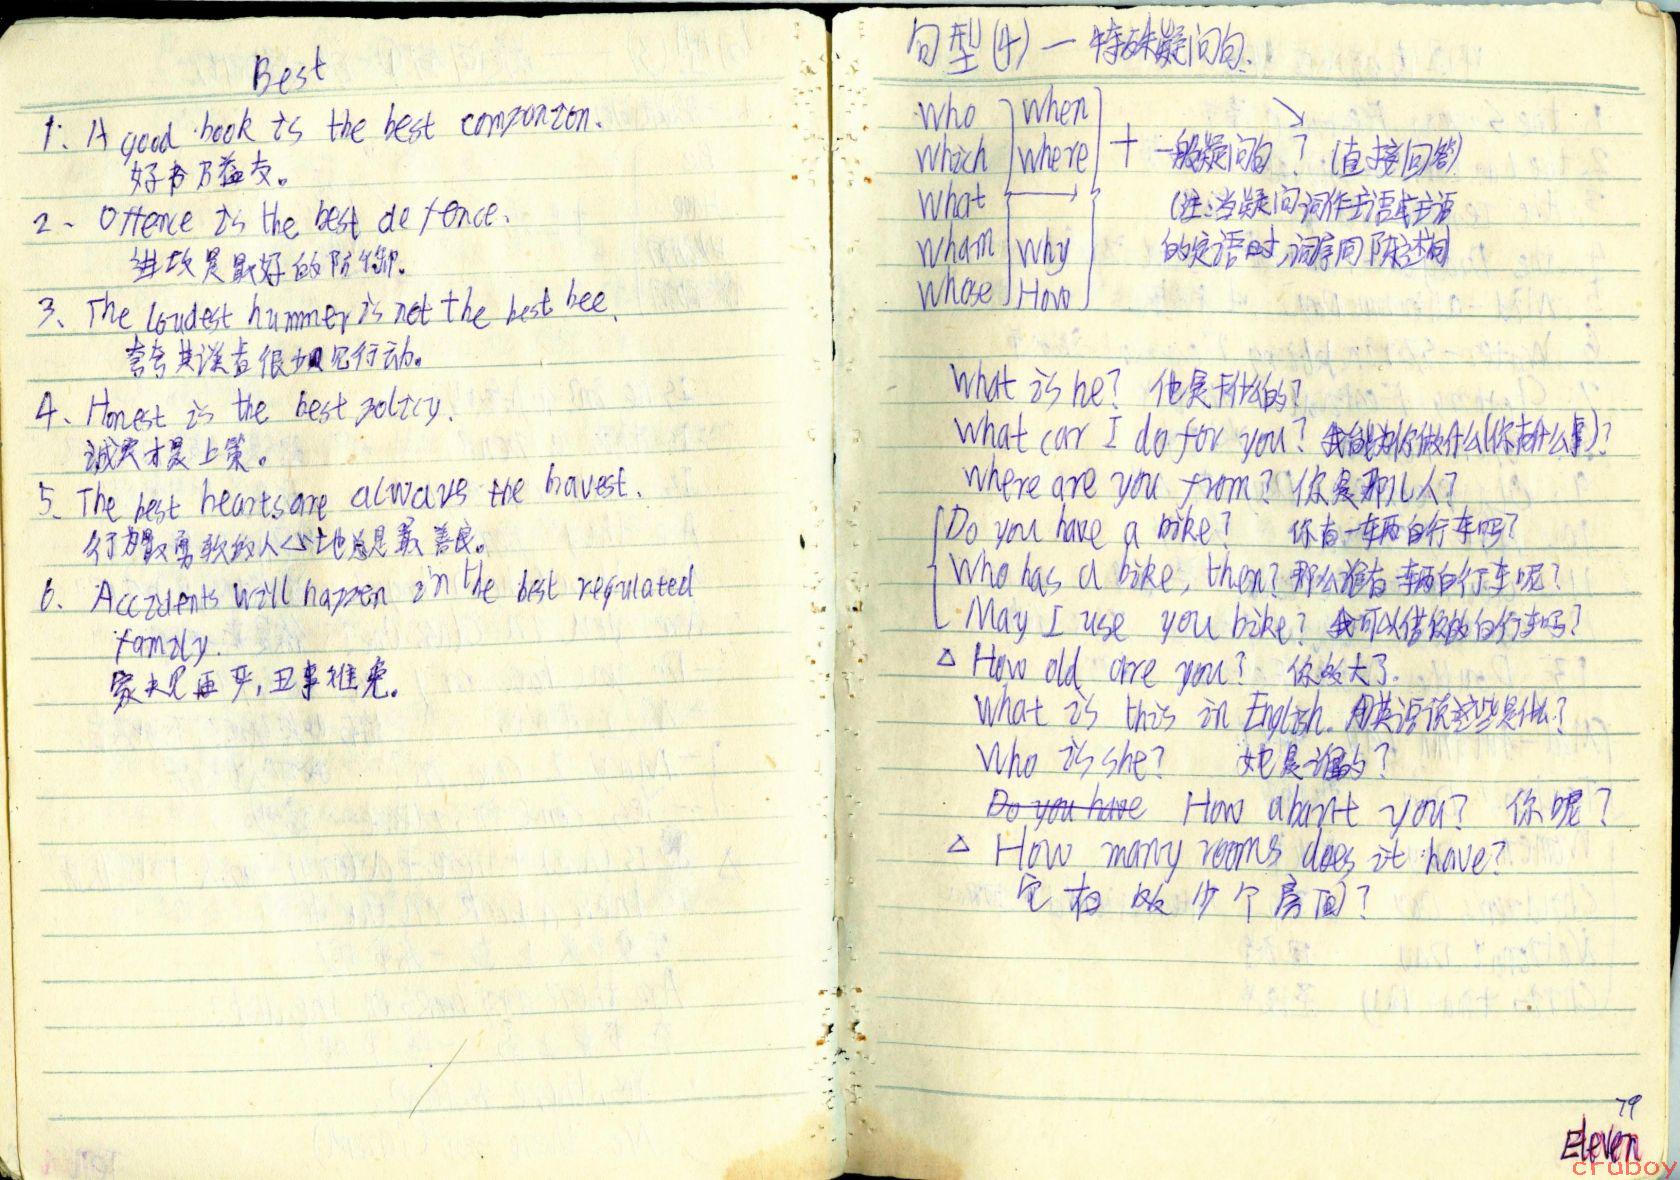 Best
1. A good book is the best companion.
好书乃益友。
2. Offence is the best defence.
进攻是最好的防御。
3. The loudest hummer is not the best bee.
夸夸其谈者很少见行动。
4. Honest is the best policy.
诚实才是上策。
5. The best hearts are always the bavest.
行为最勇敢的人心地总是最善良。
6. Accidents will happen in the best regulated
family.
家夫见再严,丑事难免。
句型(4)一特殊疑问句.
Who When
Which Where + 一般疑问句? (直接回答)
What (注:当疑问词作主语或主语
Wham Why 的定语时,词序同陈述句)
Whose How
What is he? 他是干什么的?
What can I do for you? 我能为你做什么(你有什么事)?
Where are you from? 你是那儿人?
Do you have a bike? 你有一车两自行车吗?
Who has a bike, then? 那么谁有车两自行车呢?
May I use you bike? 我可以借你的自行车吗?
△ How old are you? 你多大了.
What is this in English. 用英语说这些是什么?
Who is she? 她是谁的?
Do you have How about you? 你呢?
△ How many rooms does it have?
它有多少个房间?
79
Eleven
cruboy